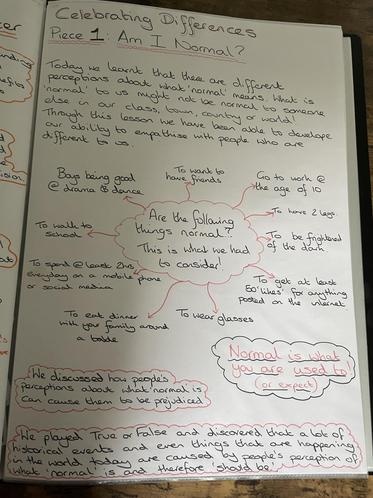 Celebrating Differences
Piece 1: Am I Normal?
Today we learnt that there are different
perceptions about what 'normal' means. What is
'normal' to us might not be normal to someone
else in our class, town, country or world!
Through this lesson we have been able to develop
our ability to empathise with people who are
different to us.
Boys being good
@ drama & dance
To want to
have friends
Go to work @
the age of 10
To have 2 legs.
To walk to
school
Are the following
things normal?
This is what we had
to consider!
To be frightened
of the dark
To spend @ least 2hrs
everyday on a mobile phone
or social media
To get at least
50 'likes' for anything
posted on the internet
To eat dinner
with your family around
a table
To wear glasses
Normal is what
you are used to
(or expect)
We discussed how people's
perceptions about what normal is
can cause them to be prejudiced
We played True or False and discovered that a lot of
historical events and even things that are happening
in the world today are caused by people's perception of
what 'normal' is and therefore 'should be'.